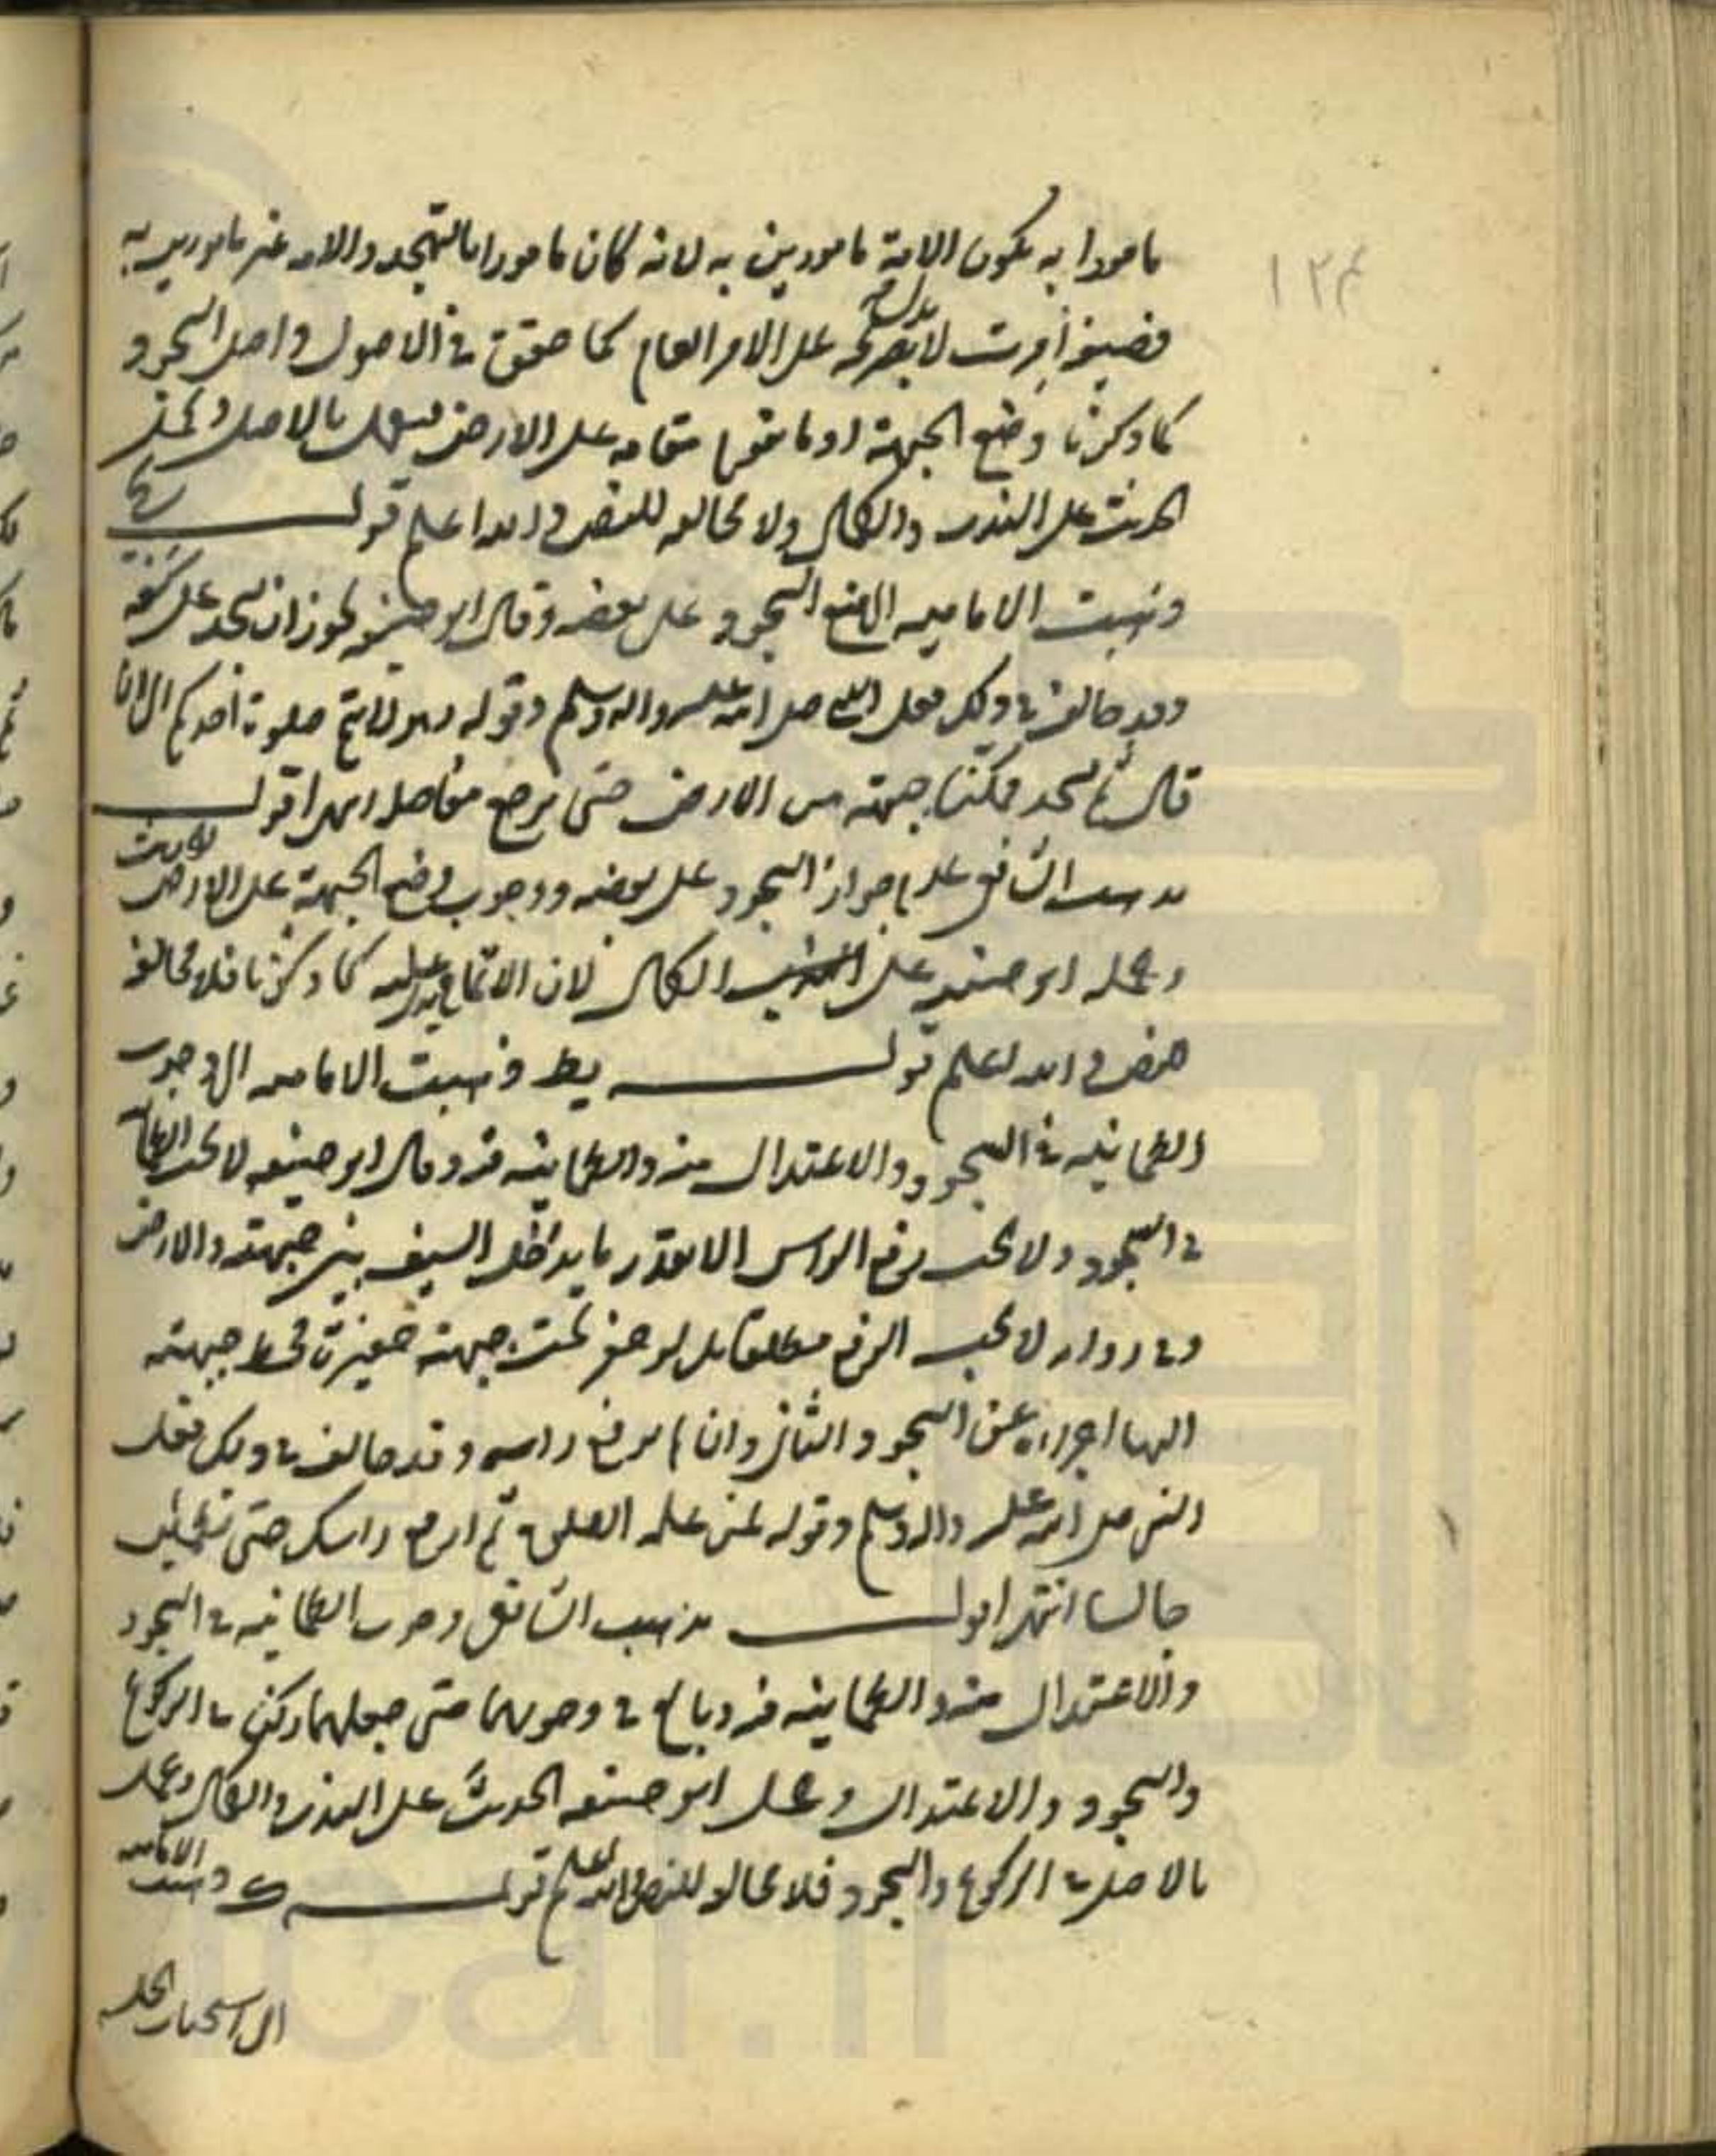 مامورا به يكون الامة مامورين به لانه كان مامورا بالتهجد والامة غير مامورين به
فصيغة أمرت لا يدل على الامر العام كما حقق في الاصول واصل السجود
كما ذكرنا وضع الجبهة او ما يقوم مقامه على الارض فيعمل بالاصل
الحديث على الندب والكمال ولا مخالفه للنص والله اعلم قولـــــه يح
وذهبت الاماميه الى منع السجود على بعضه وقال ابو حنيفه يجوز ان يسجد على كفه
وقد خالف في ذلك فعل النبي صلى الله عليه واله وسلم وقوله لا يتم صلوة احدكم الى ان
قال ثم يسجد ممكنا جبهته من الارض حتى يرجع مفاصله انتهى اقولـــــ
مذهب الشافعي عدم جواز السجود على بعضه ووجوب وضع الجبهة على الارض للحديث
وحمله ابو حنيفه على الكمال لان الاتمام يدل عليه كما ذكرنا فلا مخالفه
للنص والله اعلم قولـــــه يط وذهبت الاماميه الى وجوب
الطمانينه في السجود والاعتدال منه والطمانينه فيه وقال ابو حنيفه لا يجب الطمانينه
في السجود ولا يجب رفع الراس الا بقدر ما يدخل السيف بين جبهته والارض
وفي روايه لا يجب الرفع مطلقا بل لو حفر تحت جبهته حفيرة فحط جبهته
اليها اجزاه عن السجود الثاني وان لم يرفع راسه وقد خالف في ذلك فعل
النبي صلى الله عليه واله وسلم وقوله لمن علمه الصلوة ثم ارفع راسك حتى تطمئن
جالسا انتهى اقولـــــ مذهب الشافعي وجوب الطمانينه في السجود
والاعتدال منه والطمانينه فيه وبالغ في وجوبهما حتى جعلهما ركن في الركوع
والسجود والاعتدال وحمل ابو حنيفه الحديث على الندب والكمال وعمل
بالاصل في الركوع والسجود فلا مخالفه للنص والله اعلم قولـــــه ك وذهبت الاماميه
الى استحباب